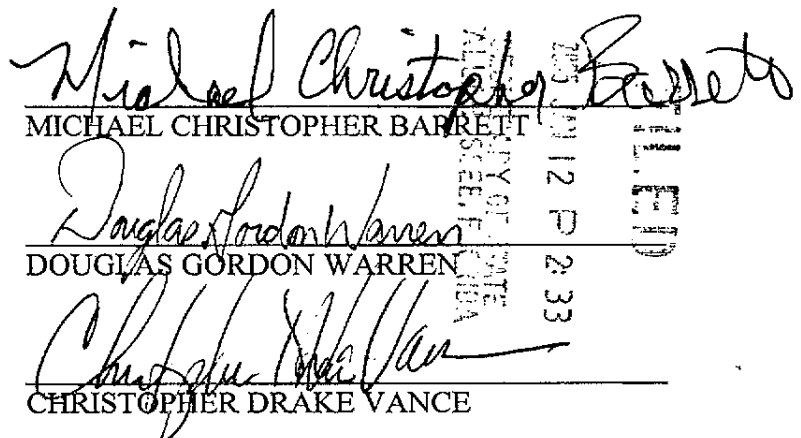 Michael Christopher Barrett
MICHAEL CHRISTOPHER BARRETT
Douglas Gordon Warren
DOUGLAS GORDON WARREN
Christopher Drake Van
CHRISTOPHER DRAKE VANCE
FILED
JAN 12 P 2:33
OF STATE